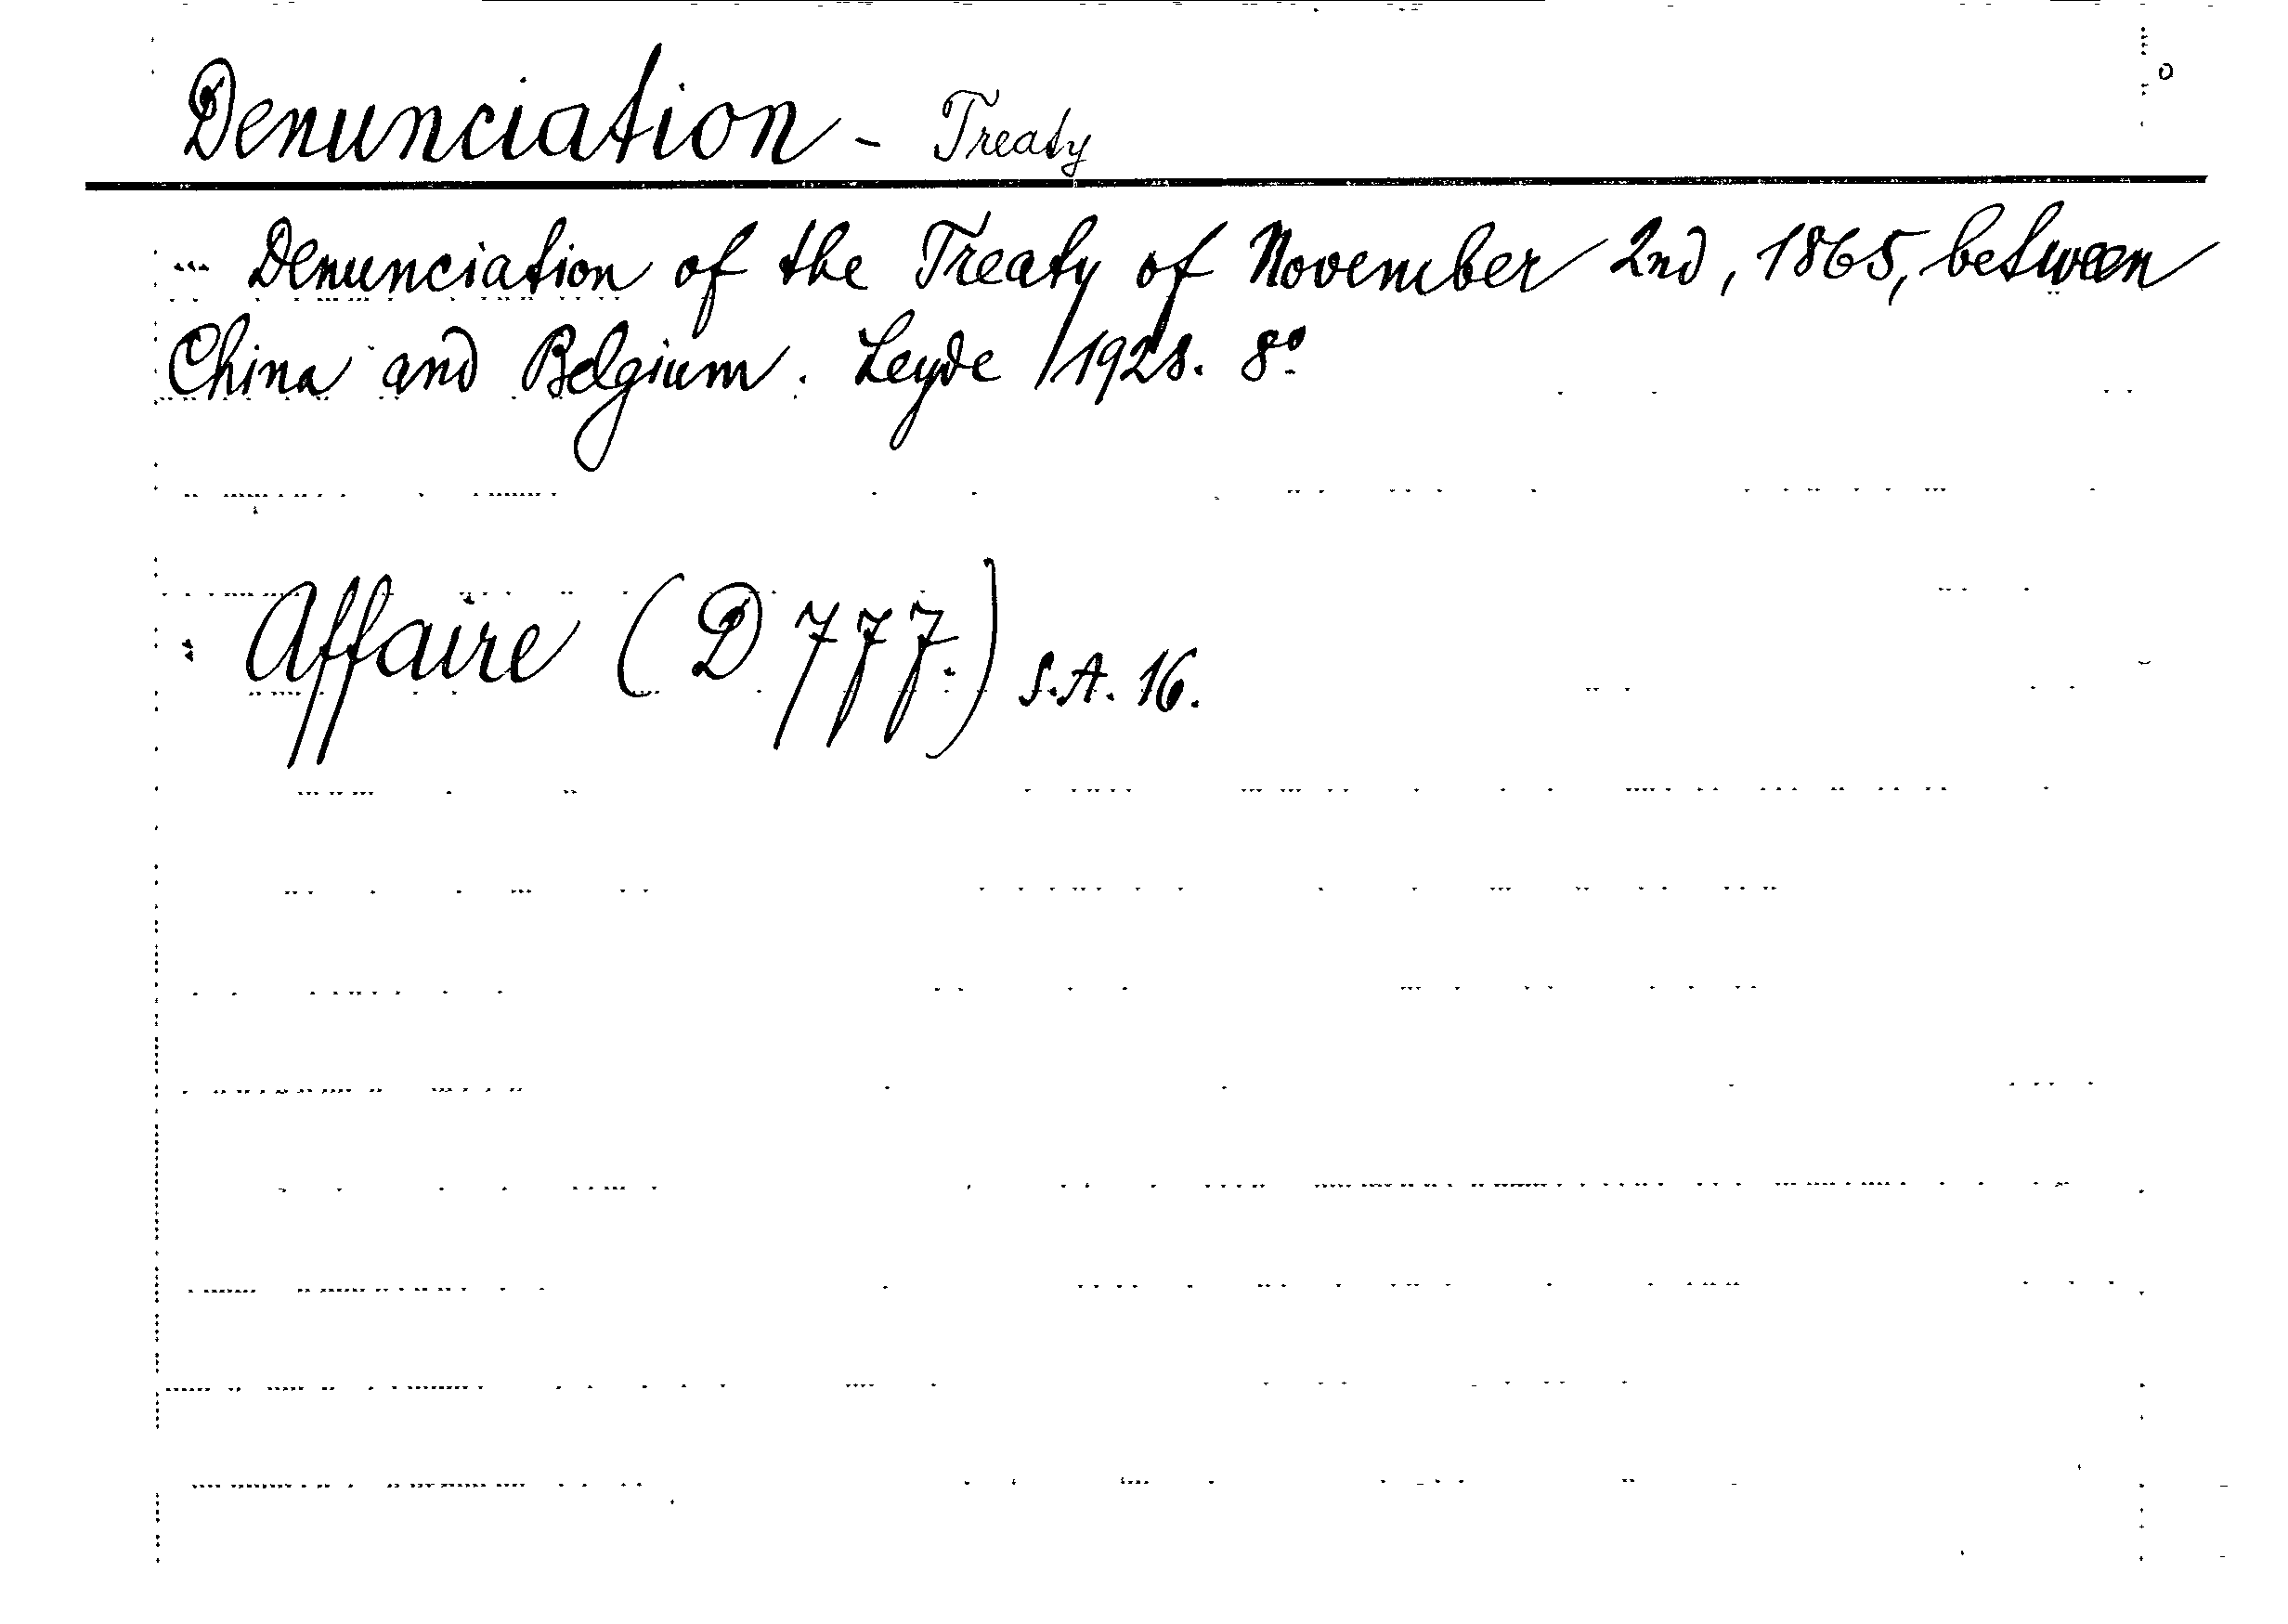 Denunciation - Treaty
Denunciation of the Treaty of November 2nd, 1865, between
China and Belgium. Leyde 1928. 8º
Affaire (D 777.) S.A. 16.